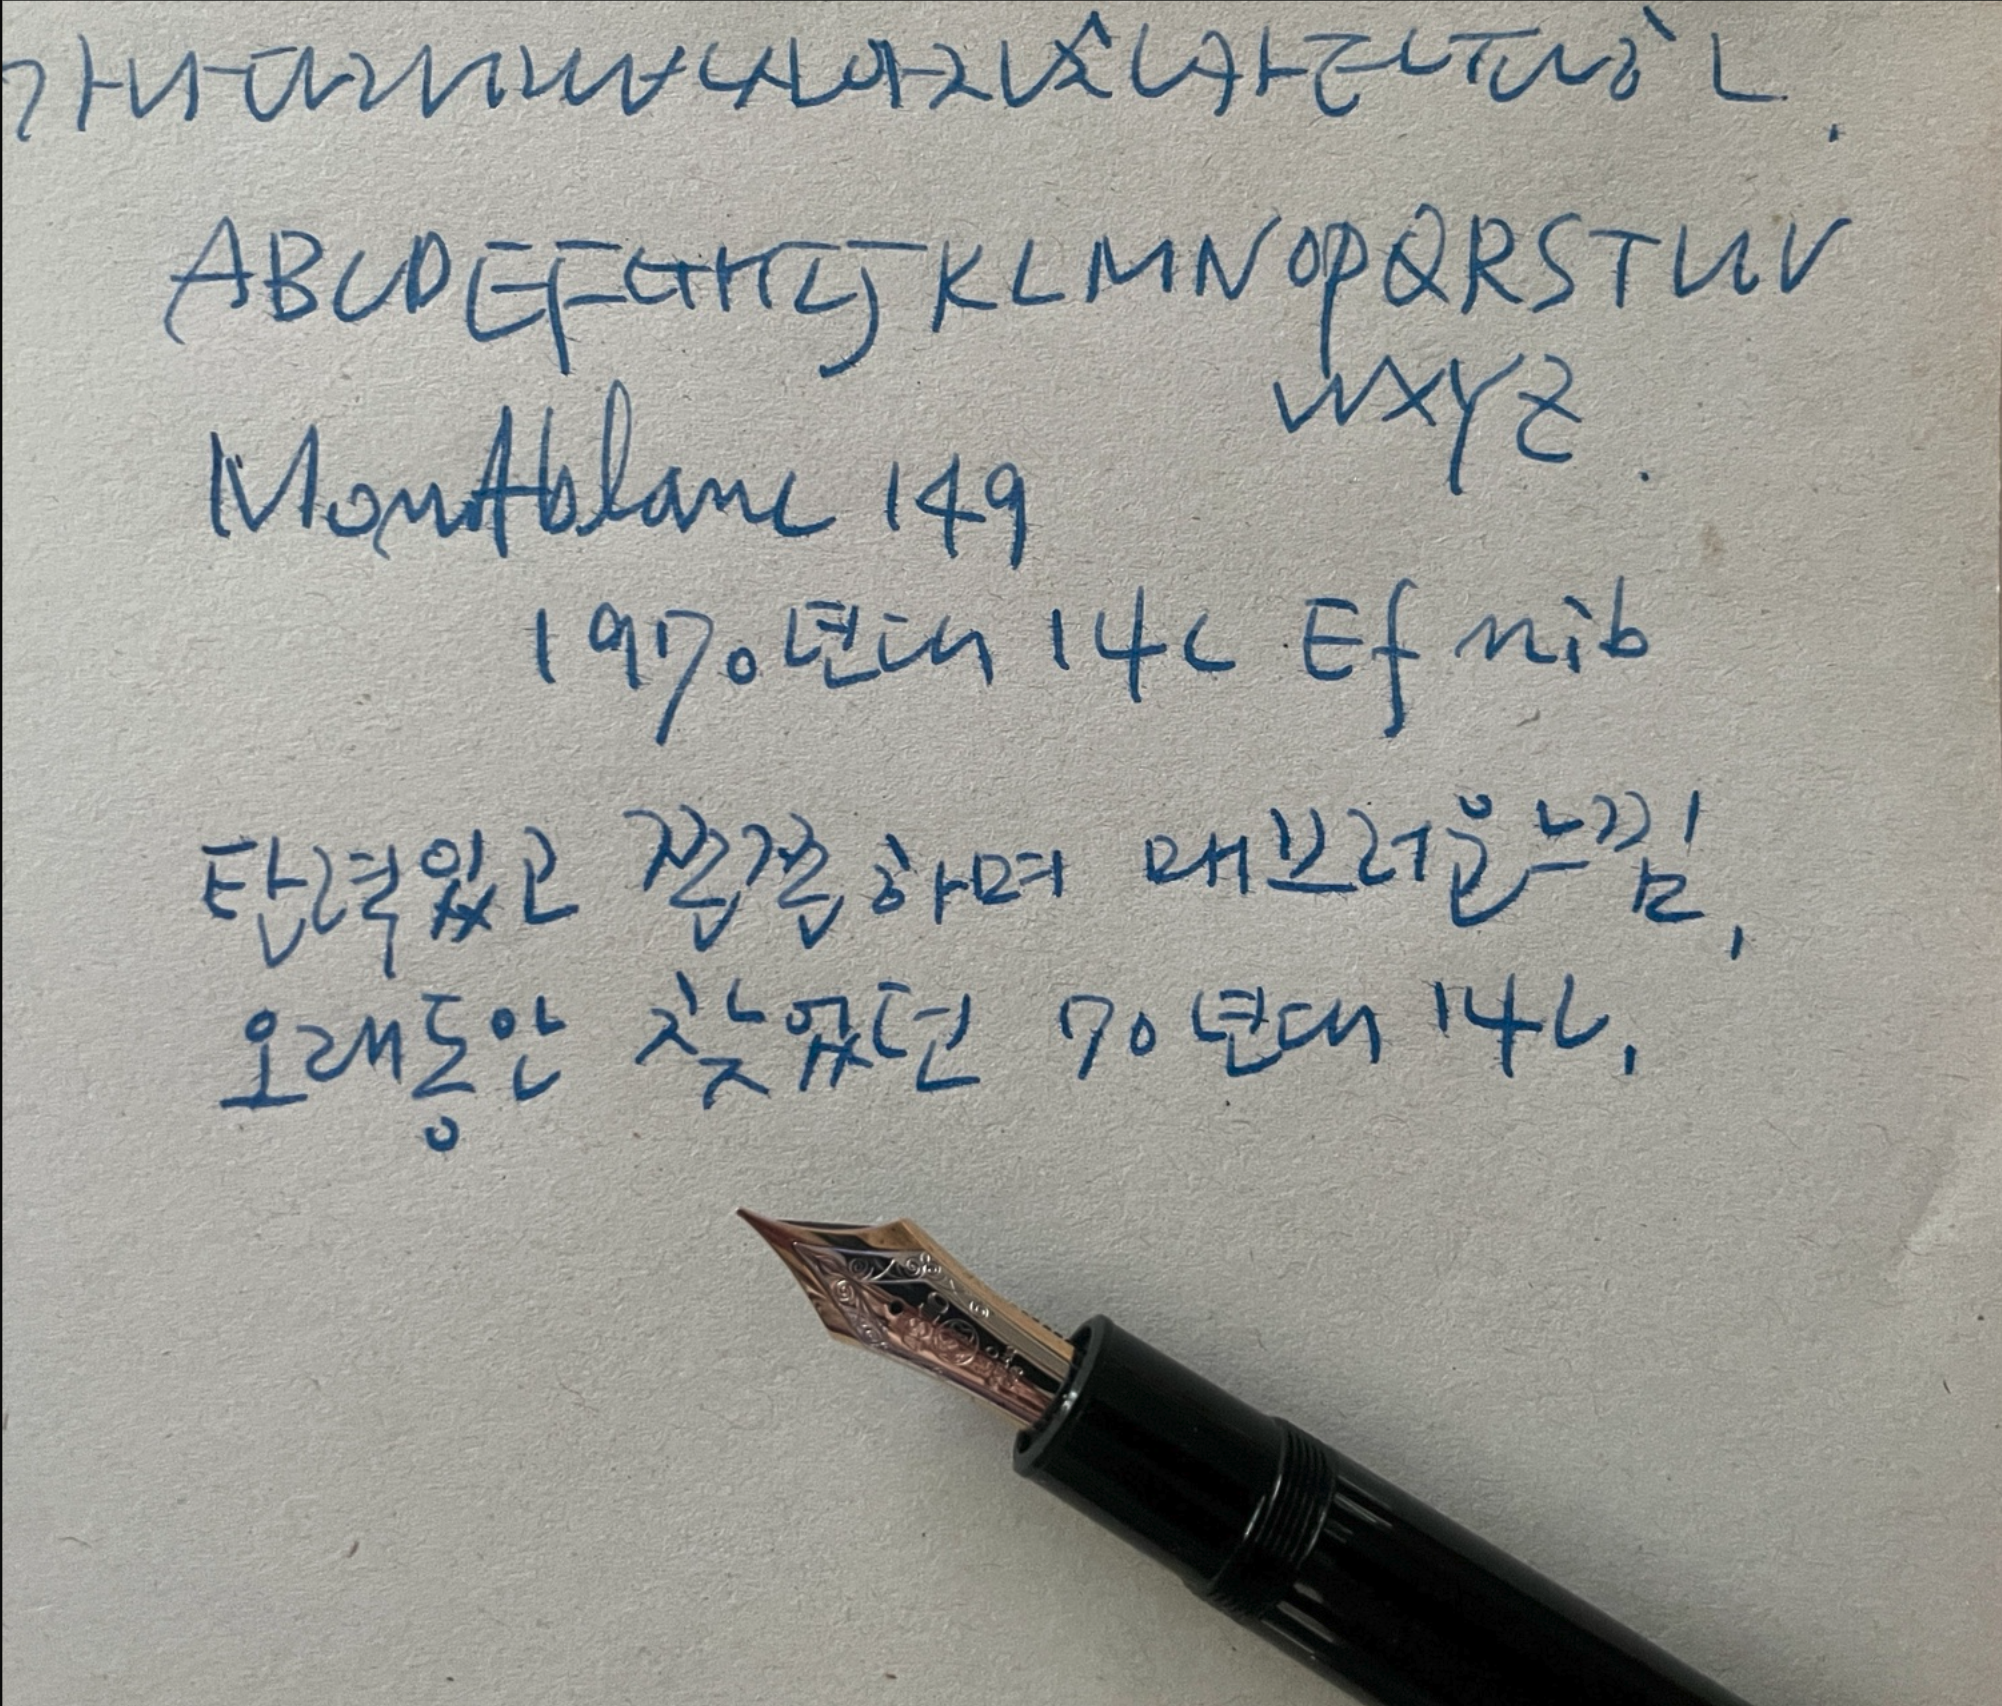 가나다라마바사아자차카타파하
ABCDEFGHIJKLMNOPQRSTUV
WXYZ.
Montblanc 149
1970년대 14C Ef nib
탄력있고 쫀쫀하며 매브러운느낌,
오래동안 찾았던 70년대 14C,